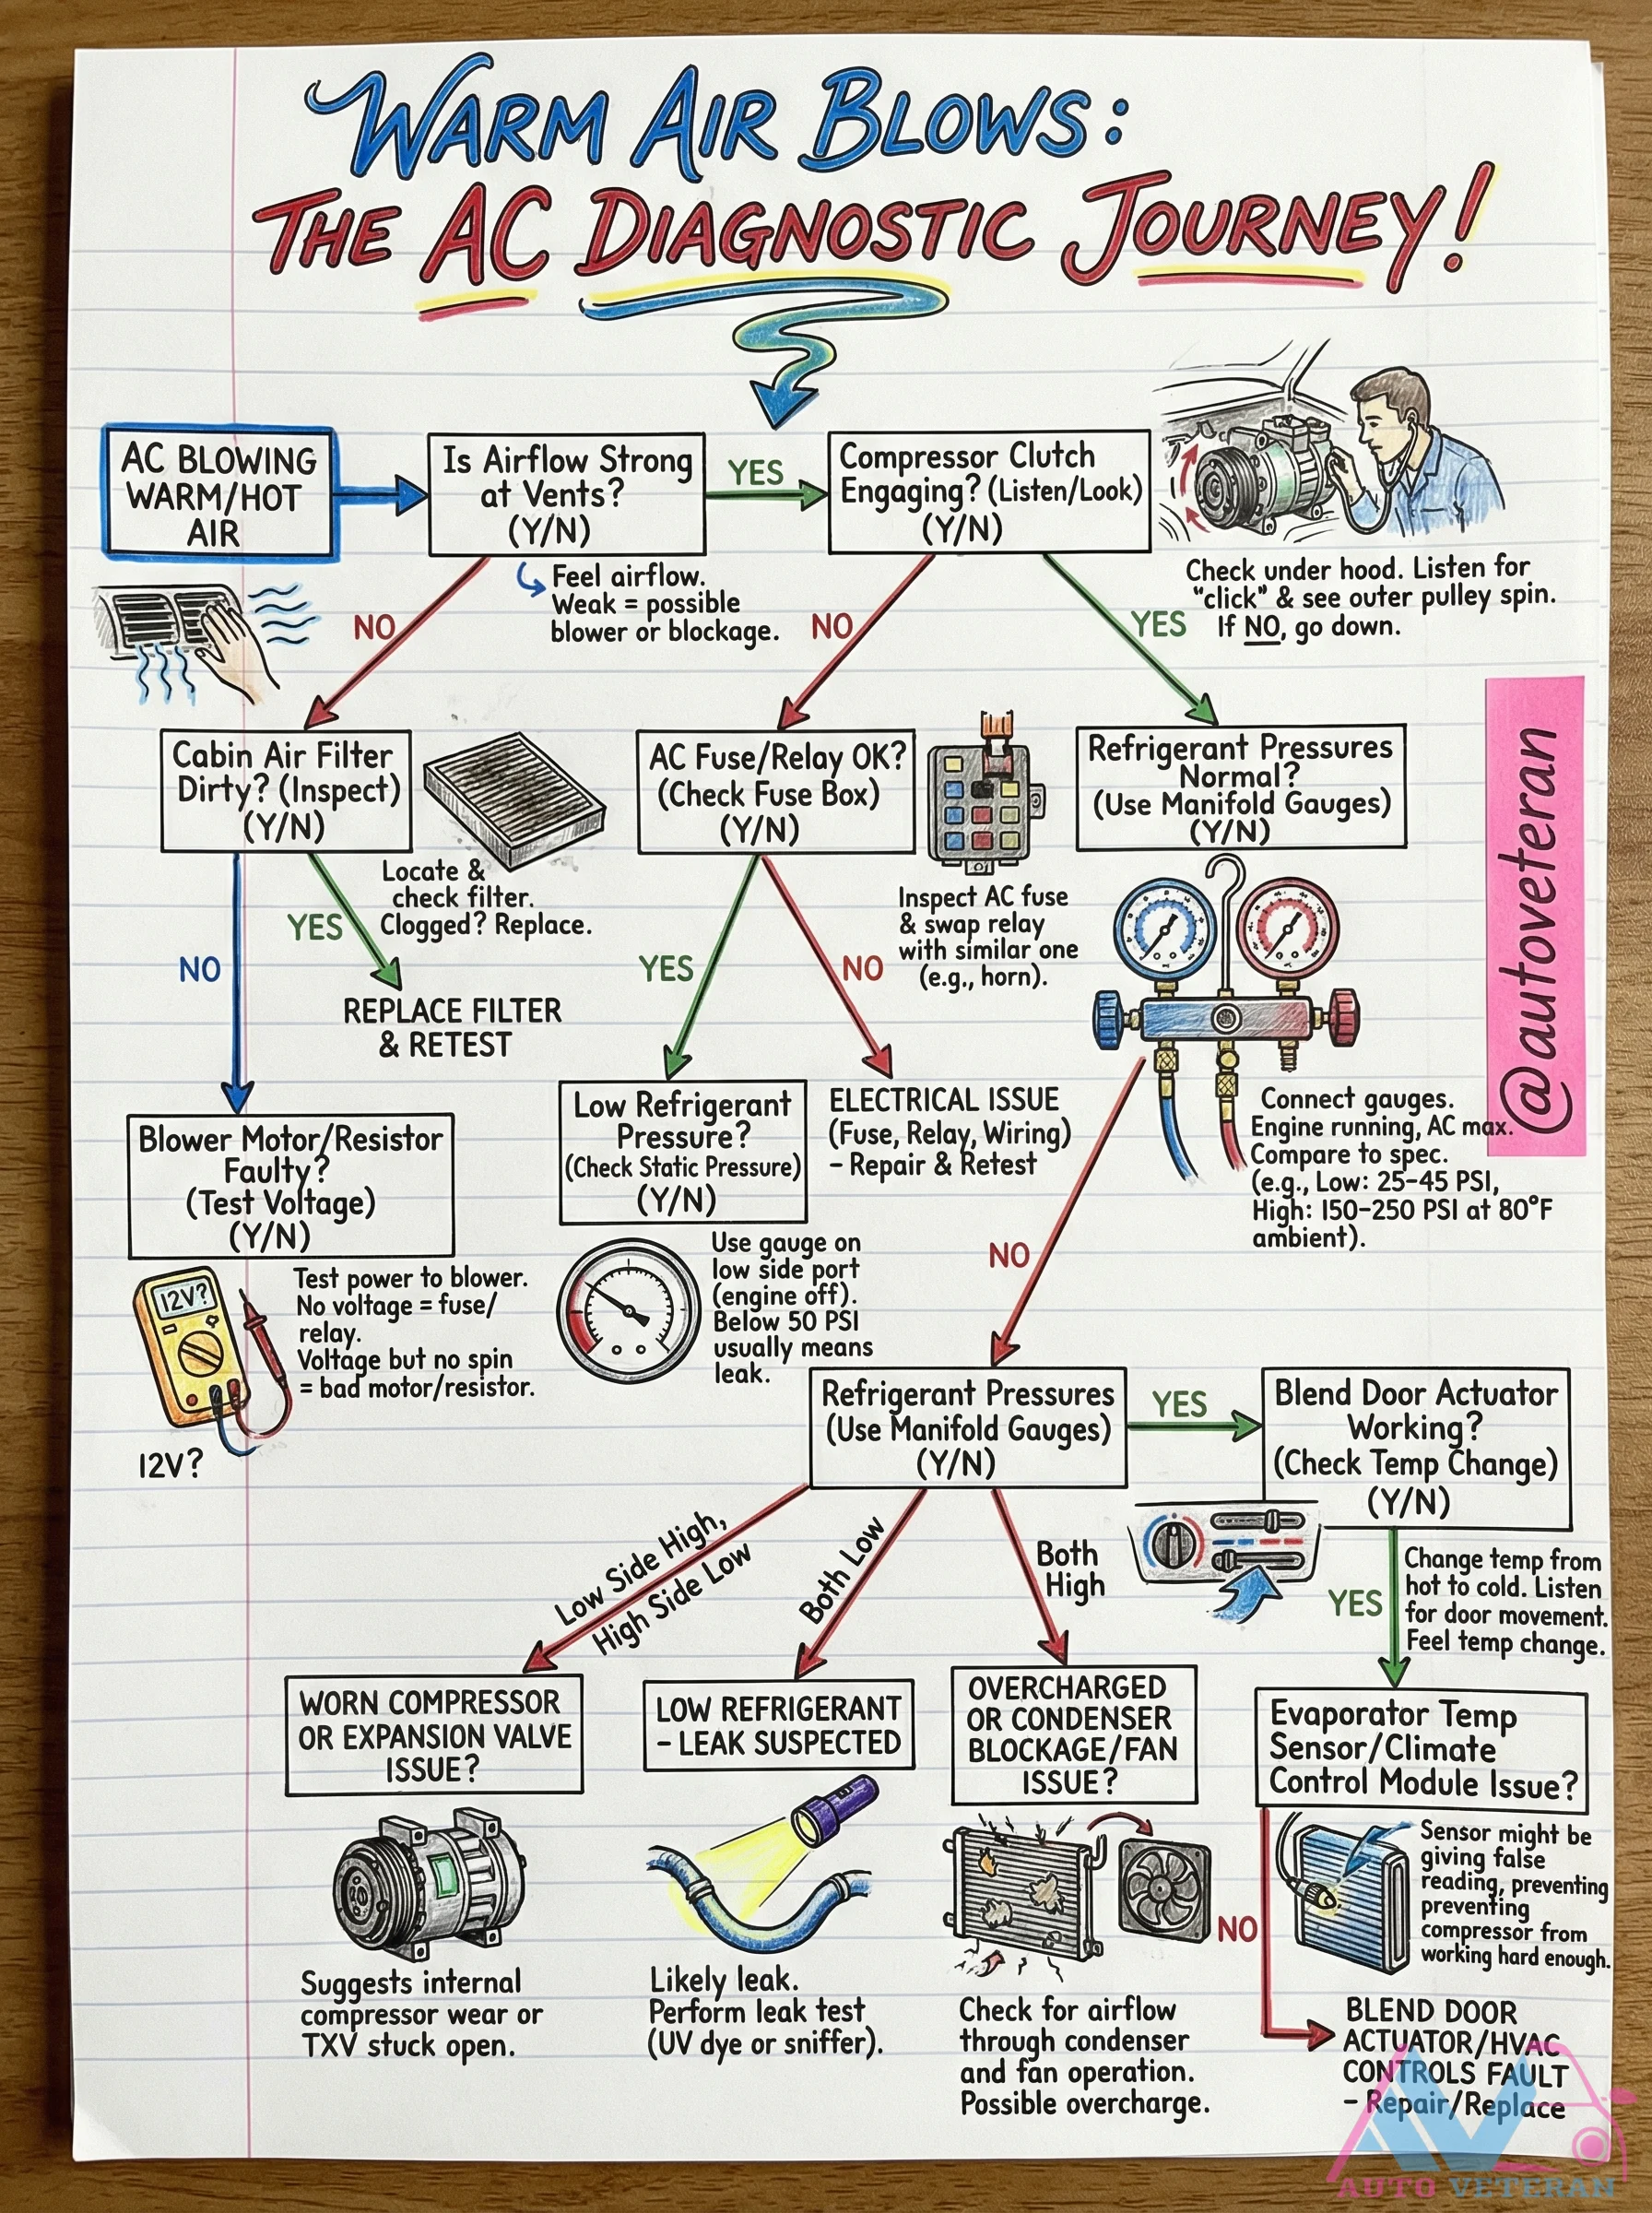 WARM AIR BLOWS:
THE AC DIAGNOSTIC JOURNEY!
AC BLOWING
WARM/HOT
AIR
Is Airflow Strong
at Vents?
(Y/N)
YES
Compressor Clutch
Engaging? (Listen/Look)
(Y/N)
Feel airflow.
Weak = possible
blower or blockage.
NO
NO
YES
Check under hood. Listen for
"click" & see outer pulley spin.
If NO, go down.
@autoveteran
Cabin Air Filter
Dirty? (Inspect)
(Y/N)
Locate &
check filter.
Clogged? Replace.
NO
YES
REPLACE FILTER
& RETEST
AC Fuse/Relay OK?
(Check Fuse Box)
(Y/N)
Inspect AC fuse
& swap relay
with similar one
(e.g., horn).
YES
NO
Refrigerant Pressures
Normal?
(Use Manifold Gauges)
(Y/N)
Connect gauges.
Engine running, AC max.
Compare to spec.
(e.g., Low: 25-45 PSI,
High: 150-250 PSI at 80°F
ambient).
NO
Blower Motor/Resistor
Faulty?
(Test Voltage)
(Y/N)
12V?
Test power to blower.
No voltage = fuse/
relay.
Voltage but no spin
= bad motor/resistor.
12V?
Low Refrigerant
Pressure?
(Check Static Pressure)
(Y/N)
Use gauge on
low side port
(engine off).
Below 50 PSI
usually means
leak.
ELECTRICAL ISSUE
(Fuse, Relay, Wiring)
- Repair & Retest
Refrigerant Pressures
(Use Manifold Gauges)
(Y/N)
YES
Blend Door Actuator
Working?
(Check Temp Change)
(Y/N)
Low Side High,
High Side Low
Both Low
Both
High
YES
Change temp from
hot to cold. Listen
for door movement.
Feel temp change.
WORN COMPRESSOR
OR EXPANSION VALVE
ISSUE?
Suggests internal
compressor wear or
TXV stuck open.
LOW REFRIGERANT
- LEAK SUSPECTED
Likely leak.
Perform leak test
(UV dye or sniffer).
OVERCHARGED
OR CONDENSER
BLOCKAGE/FAN
ISSUE?
Check for airflow
through condenser
and fan operation.
Possible overcharge.
Evaporator Temp
Sensor/Climate
Control Module Issue?
Sensor might be
giving false
reading, preventing
preventing
compressor from
working hard enough.
NO
BLEND DOOR
ACTUATOR/HVAC
CONTROLS FAULT
- Repair/Replace
AUTO VETERAN